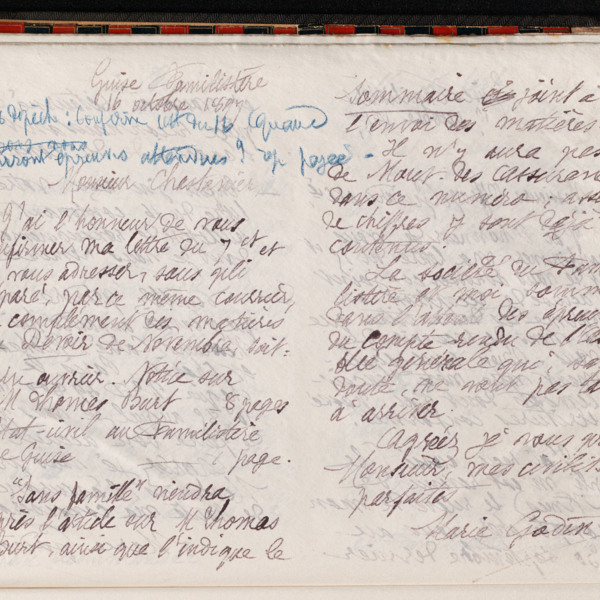 Guise Familistère
16 octobre 1897
dépêche : Conforme
épreuves attendues
Monsieur Chastanier
J'ai l'honneur de vous
firmer ma lettre du 7 ct et
vous adresser, sous pli
paré, par ce même courrier,
complément des matières
Devoir de novembre, soit :
ouvrier. Notice sur
M Thomas Burt _ 8 pages
tat civil au Familistère
e Guise _ 1 page.
"Sans famille" viendra
près l'article sur M Thomas
Burt, ainsi que l'indique le
sommaire joint à
l'envoi des matières
Il n'y aura pas
de Mouvt. des assuran
dans ce numéro ; ass
de chiffres y sont déjà
contenus.
La société du Fami
listère & moi somm
dans l'attente des épreu
du compte rendu de l'as
blée générale qui, sa
doute, ne vont pas ta
à arriver.
Agréez, je vous pr
Monsieur, mes civilit
parfaites
Marie Godin